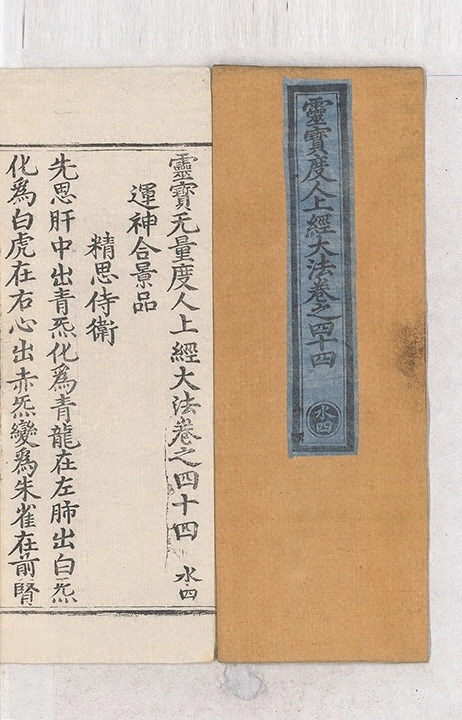 靈寶度人上經大法卷之四十四
水四
靈寶无量度人上經大法卷之四十四 水四
運神合景品
精思侍衛
先思肝中出青炁化為青龍在左肺出白炁
化為白虎在右心出赤炁變為朱雀在前腎